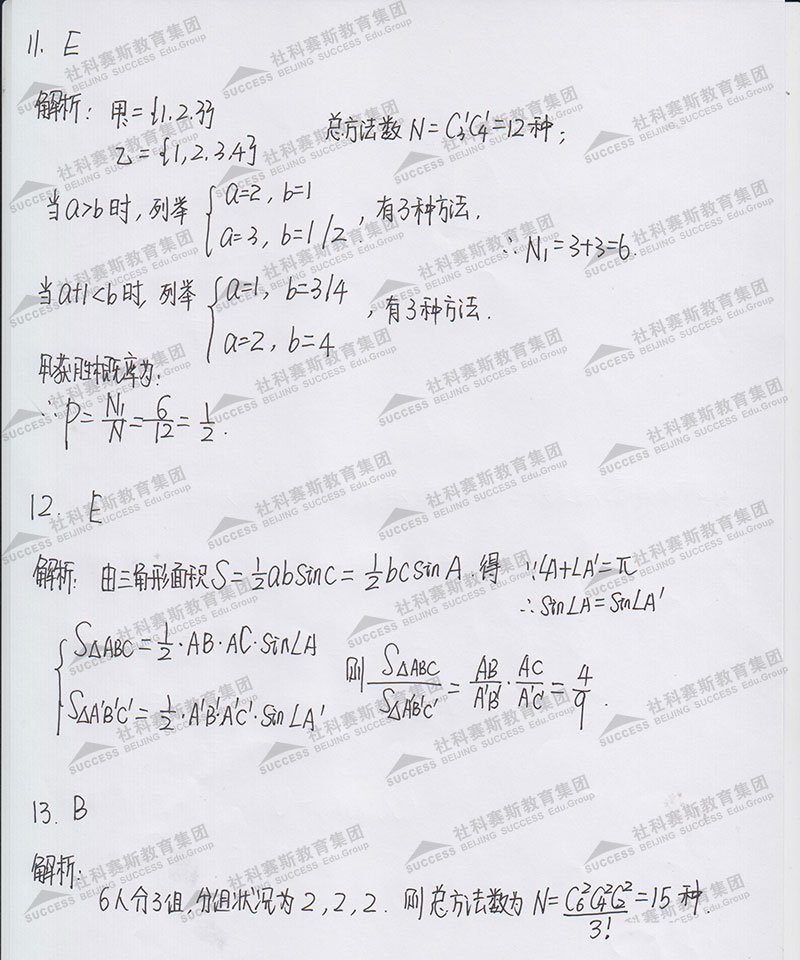 11. E
解析: 甲={1,2,3}
乙={1,2,3,4}
总方法数 N=C₃¹C₄¹=12种;
当a>b时,列举 { a=2, b=1
a=3, b=1/2 , 有3种方法.
∴N₁=3+3=6.
当a+1<b时,列举 { a=1, b=3/4
a=2, b=4 , 有3种方法.
甲获胜概率为:
∴P=N₁/N=6/12=1/2.
12. E
解析: 由三角形面积S=1/2absinC=1/2bcsinA.得 ∵∠A+∠A'=π
∴sin∠A=sin∠A'
{ S△ABC=1/2·AB·AC·sin∠A
S△A'B'C'=1/2·A'B'·A'C'·sin∠A'
则 S△ABC/S△A'B'C'=AB/A'B'·AC/A'C'=4/9.
13. B
解析:
6人分3组,分组状况为2,2,2. 则总方法数为 N=C₆²C₄²C₂²/3!=15种.
社科赛斯教育集团
SUCCESS BEIJING SUCCESS Edu.Group